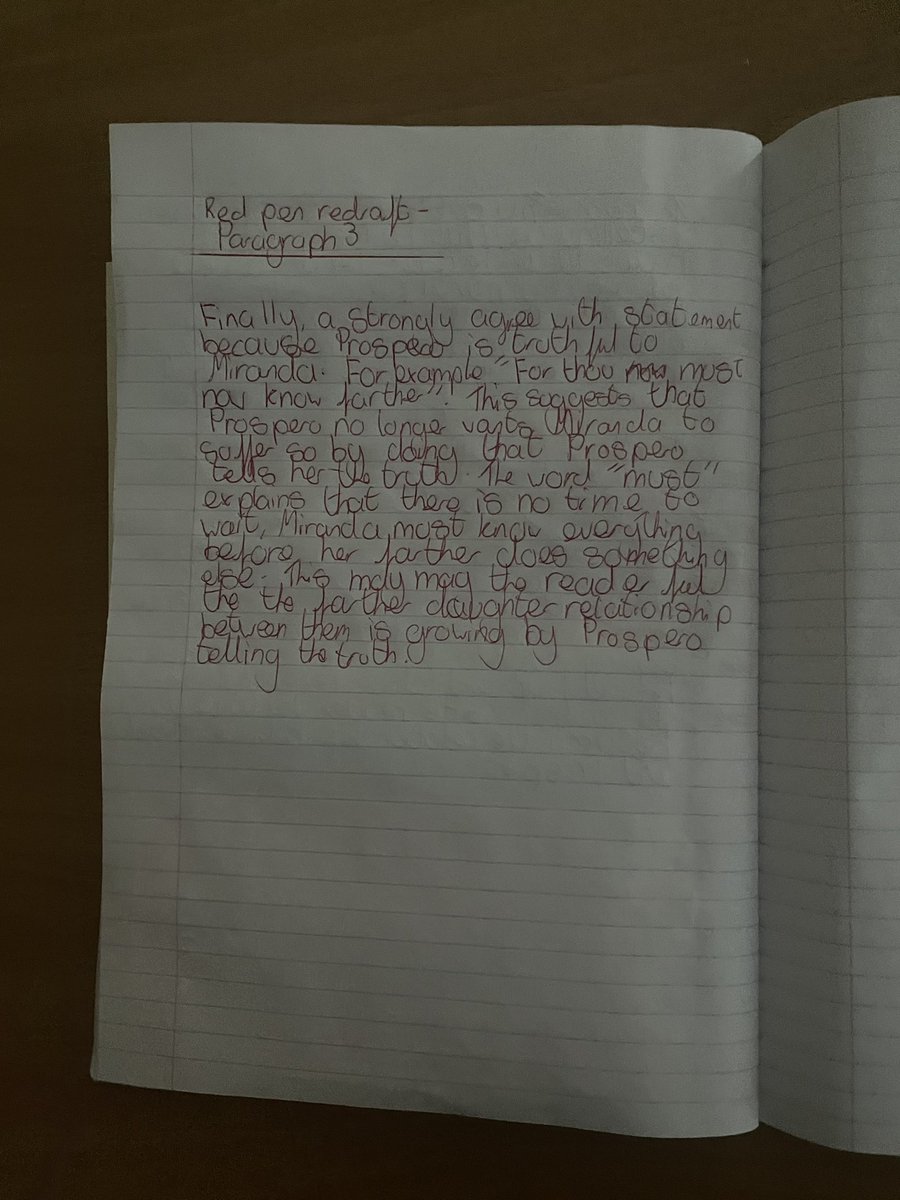 Red pen redraft -
Paragraph 3
Finally, a strongly agree with statement
because Prospero is truthful to
Miranda. For example "For thou now must
now know farther". This suggests that
Prospero no longer wants Miranda to
suffer so by doing that Prospero
tells her the truth. The word "must"
explains that there is no time to
wait, Miranda must know everything
before her farther does something
else. This may may the reader feel
the the farther daughter relationship
between them is growing by Prospero
telling the truth.